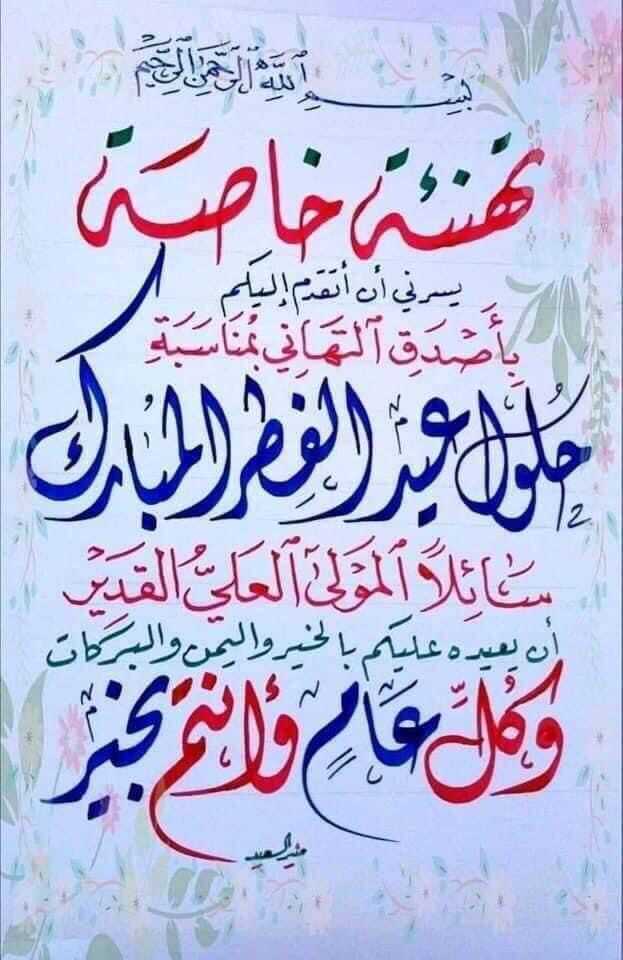 بسم الله الرحمن الرحيم
تهنئة خاصة
يسرني أن أتقدم إليكم
بِأَصْدَقِ ٱلتَّهَانِي بمُنَاسَبَةِ
حُلُول عيد الفِطر المُبارك
سَائِلًا ٱلمَوْلَىٰ ٱلعَليُّ القَدِيْر
أن يعيده عليكم بالخير واليمن والبركات
وَكُلّ عَامٍ وأنتم بخير
منير السعيد